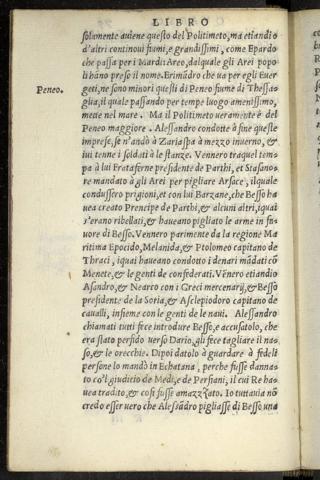 LIBRO
solamente auiene questo del Politimeto, ma etiãdio
d'altri continoui fiumi, e grandissimi, come Epardo
che passa per i Mardi: Areo, dalquale gli Arei popo
li hãno preso il nome. Erimãdro che va per egli Euer
geti, ne sono minori questi di Peneo fiume di Thessa-
Peneo.
glia, il quale passando per tempe luogo amenissimo,
mette nel mare. Ma il Politimeto veramente è del
Peneo maggiore. Alessandro condotte à fine queste
imprese, se n'andò à Zariaspa à mezzo inuerno, &
lui tenne i soldati à le stanze. Vennero in quel tem-
pa à lui Frataferne presidente de Parthi, et Stasano
re mandato à gli Arei per pigliare Arsace, ilquale
condussero prigioni, et con lui Barzane, che Besso ha
uea creato Prencipe de Parthi, & alcuni altri, iquai
s'erano ribellati, & haueano pigliato le arme in fa
uore di Besso. Vennero parimente da la regione Ma
ritima Epocido, Melanida, & Ptolomeo capitano de
Thraci, iquai haueano condotto i denari mãdati cõ
Menete, & le genti de confederati. Vẽnero etiandio
Asandro, & Nearco con i Greci mercenarij, & Besso
presidente de la Soria, & Asclepiodoro capitano de
caualli, insieme con le genti de le naui. Alessandro
chiamati tutti fece introdure Besso, e accusatolo, che
era stato perfido verso Dario, gli fece tagliare il na-
so, & le orecchie. Dipoi datolo à guardare à fedeli
persone lo mandò in Echatana, perche fusse danna-
to co'l giuditio de Medi, e de Persiani, il cui Re ha-
uea tradito, & cosi fusse amazzato. Io tuttauia nõ
credo esser vero che Alessãdro pigliasse di Besso una